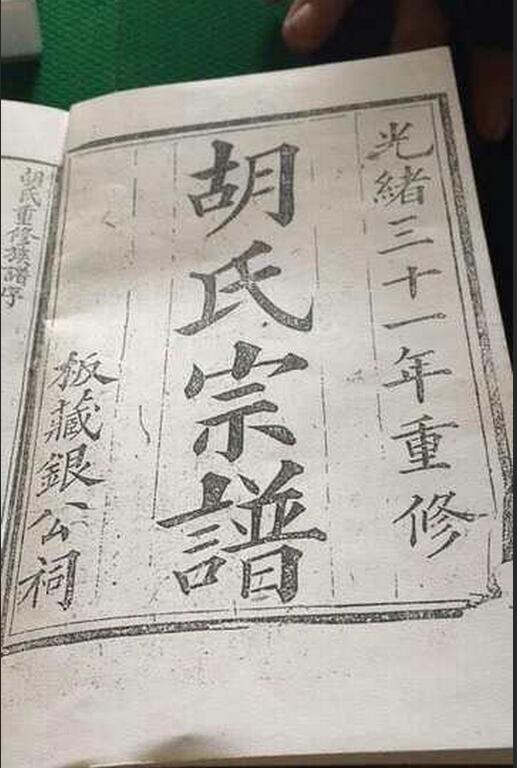 光緒三十一年重修
胡氏宗譜
板藏銀公祠
胡氏重修族譜序